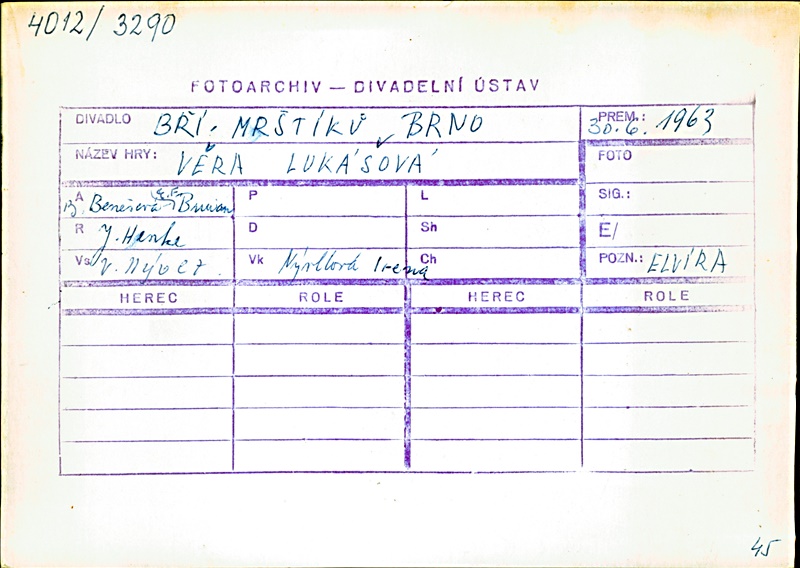 4012/ 3290
FOTOARCHIV — DIVADELNÍ ÚSTAV
DIVADLO BŘÍ. MRŠTÍKŮ, BRNO PREM.: 30.6. 1963
NÁZEV HRY: VĚRA LUKÁŠOVÁ FOTO
A B. Benešová E.F. Burian P L SIG.:
R J. Henke D Sh É/
Vs V. Nývlt. Vk Nývltová Irena Ch POZN.: ELVÍRA
HEREC ROLE HEREC ROLE
45